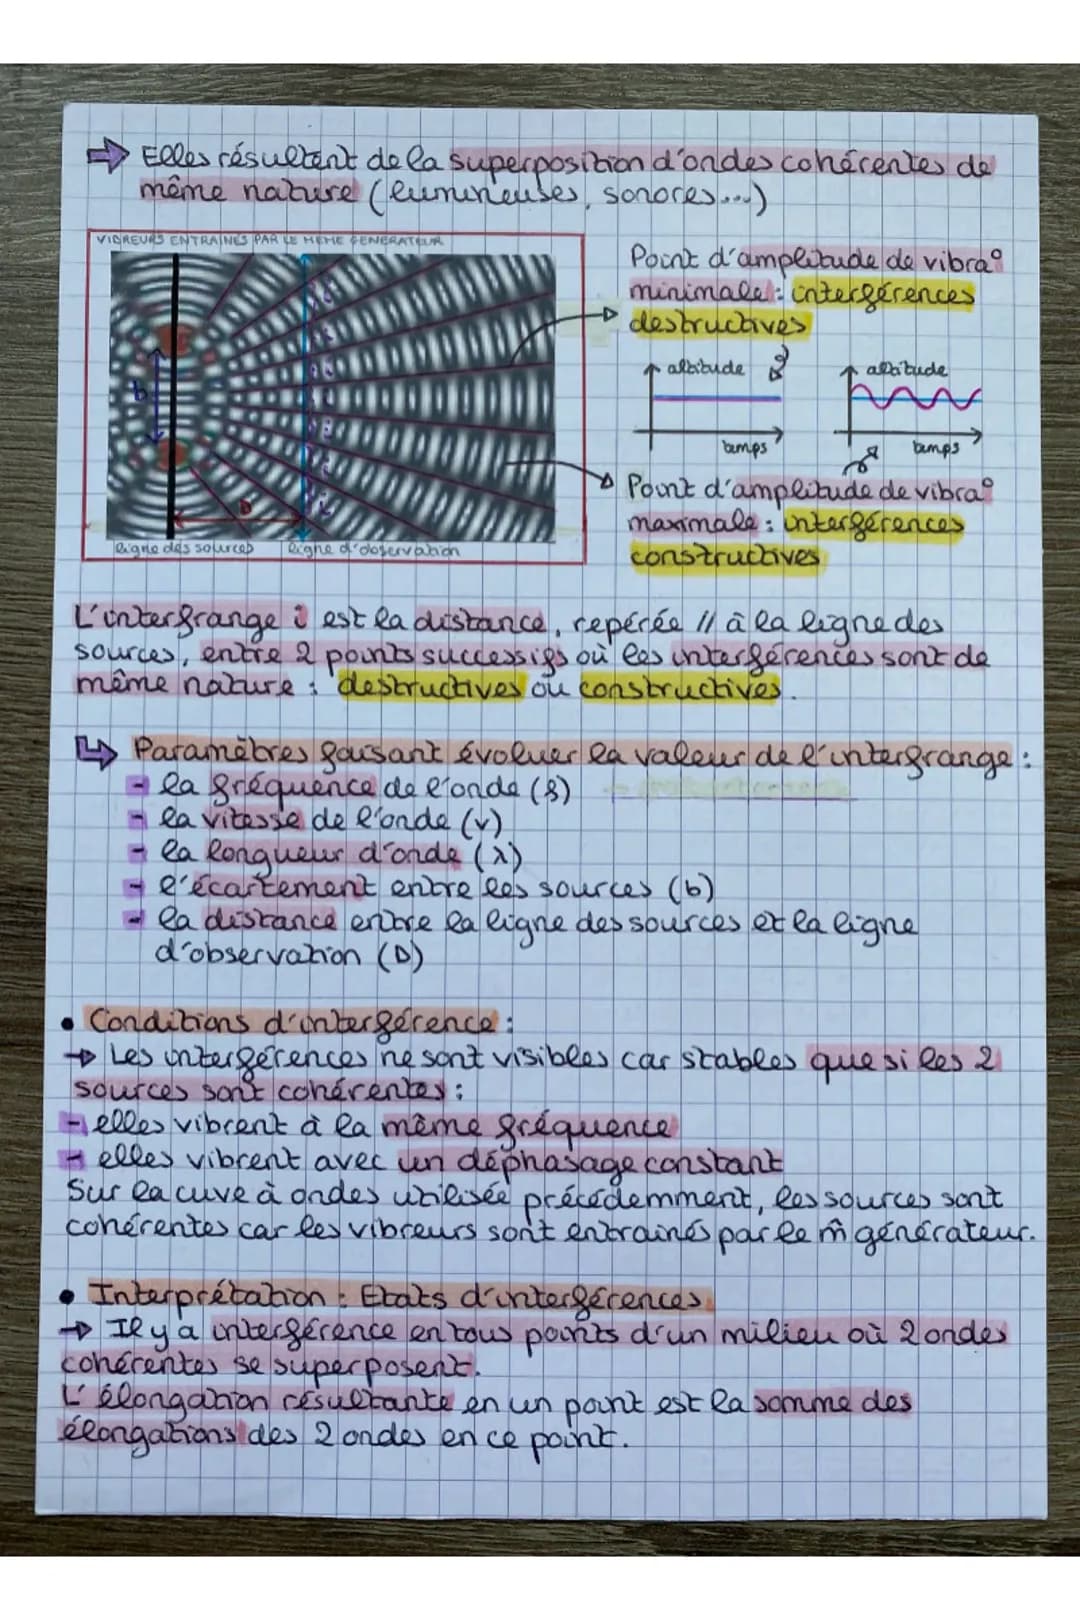 Elles résultent de la superposition d'ondes cohérentes de
même nature (lumineuses, sonores...)
VIBREURS ENTRAINÉS PAR LE MÊME GENERATEUR
b
D
i
i
i
i
i
i
ligne des sources
ligne d'observation
Point d'amplitude de vibra°
minimale : interférences
destructives
altitude
temps
altitude
temps
Point d'amplitude de vibra°
maximale : interférences
constructives
L'interfrange i est la distance, repérée // à la ligne des
sources, entre 2 points successifs où les interférences sont de
même nature : destructives ou constructives.
Paramètres faisant évoluer la valeur de l'interfrange :
- la fréquence de l'onde (f)
- la vitesse de l'onde (v)
- la longueur d'onde (λ)
- l'écartement entre les sources (b)
- la distance entre la ligne des sources et la ligne
d'observation (D)
• Conditions d'interférence :
→ Les interférences ne sont visibles car stables que si les 2
sources sont cohérentes :
- elles vibrent à la même fréquence
- elles vibrent avec un déphasage constant
Sur la cuve à ondes utilisée précédemment, les sources sont
cohérentes car les vibreurs sont entrainés par le m̂ générateur.
• Interprétation : Etats d'interférences
→ Il y a interférence en tous points d'un milieu où 2 ondes
cohérentes se superposent.
L'élongation résultante en un point est la somme des
élongations des 2 ondes en ce point.